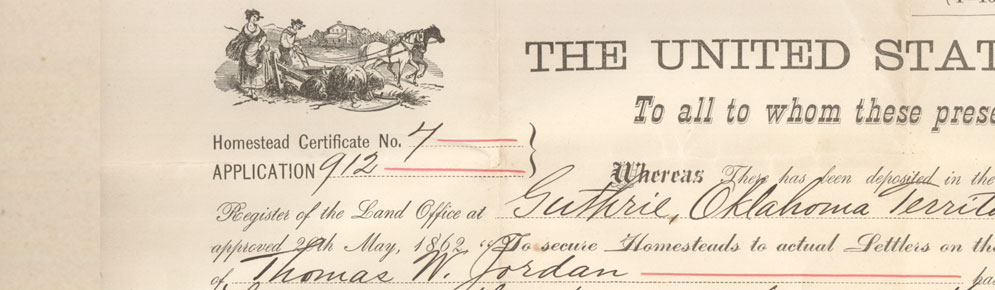 THE UNITED STAT
To all to whom these prese
Homestead Certificate No. 7
APPLICATION 912
Whereas There has been deposited in the
Register of the Land Office at Guthrie, Oklahoma Territo
approved 20th May, 1862, "To secure Homesteads to actual Settlers on th
of Thomas W. Jordan ha